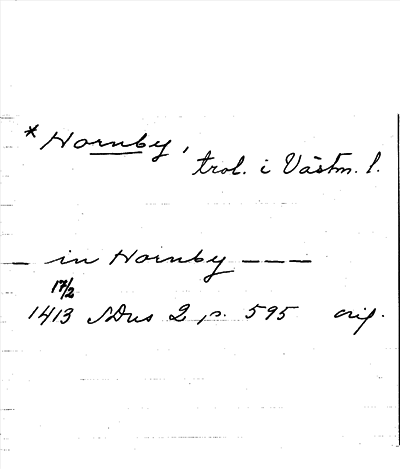 * Hornby,
trol. i Västm. l.
— in Hornby ———
17/2
1413 SDns 2 p. 595 orig.